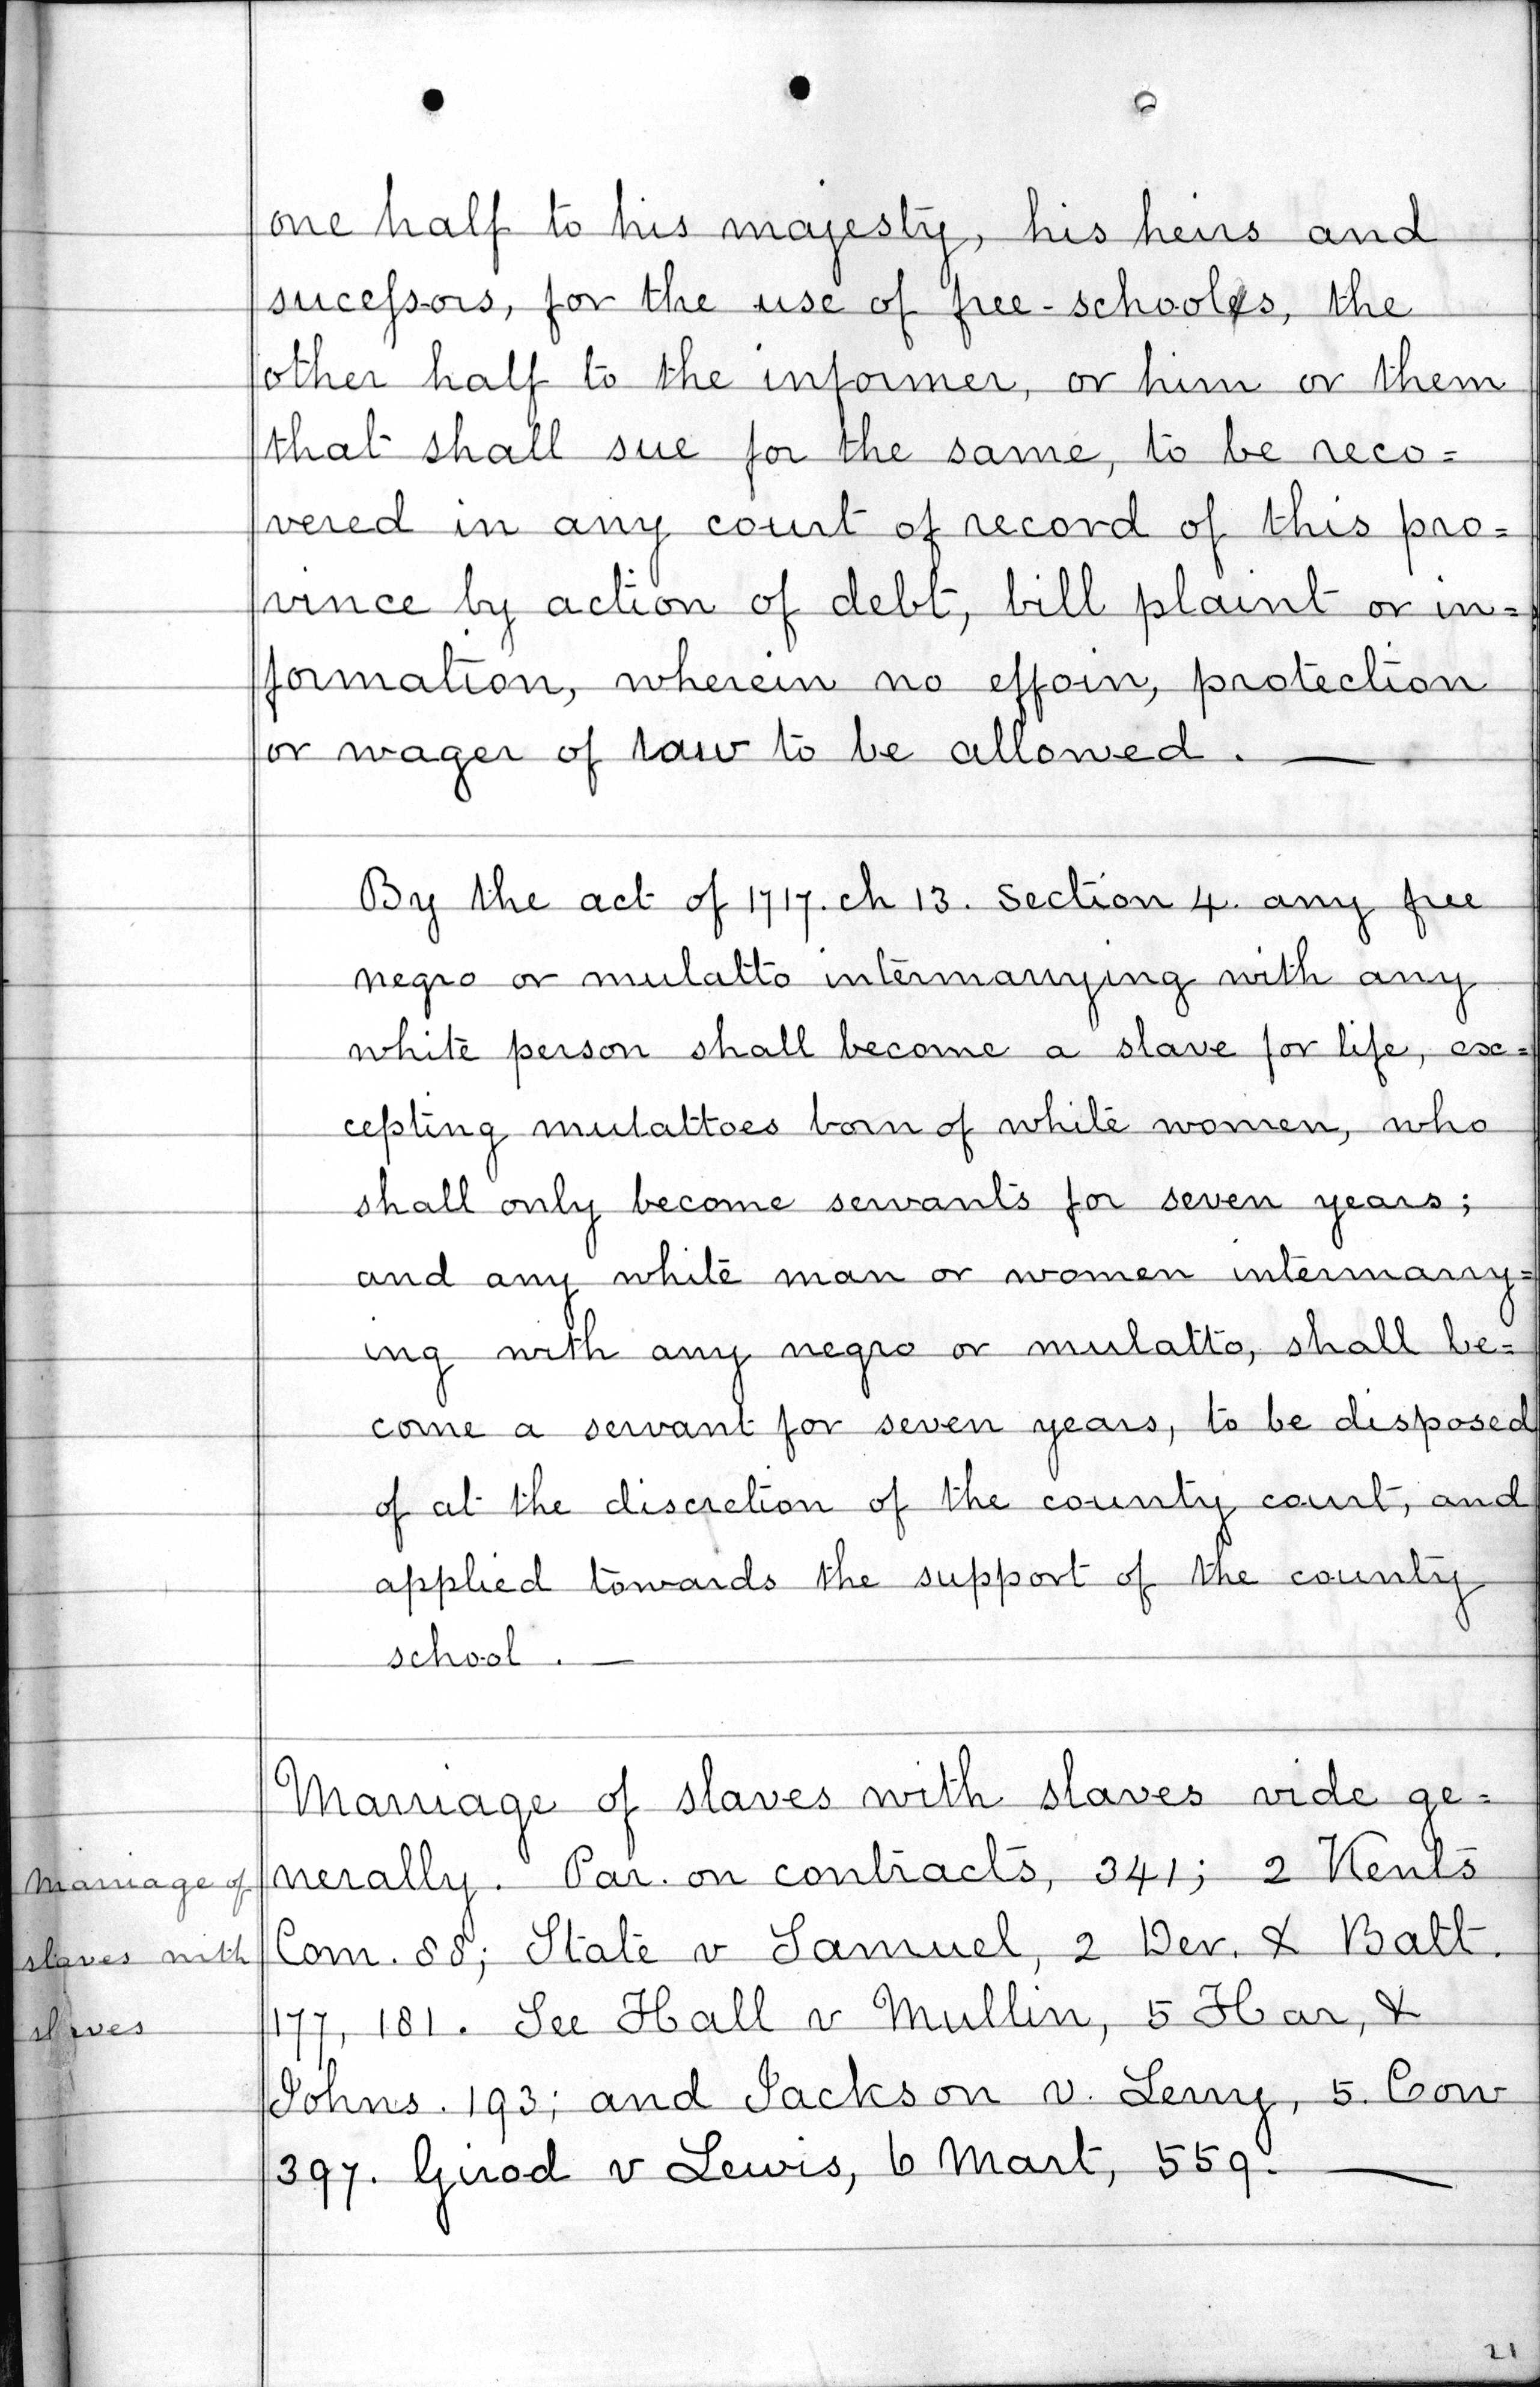 one half to his majesty, his heirs and
suceſsors, for the use of free-schools, the
other half to the informer, or him or them
that shall sue for the same, to be reco=
vered in any court of record of this pro=
vince by action of debt, bill plaint or in=
formation, wherein no eſſoin, protection
or wager of law to be allowed. —
By the act of 1717. ch 13. Section 4. any free
negro or mulatto intermarrying with any
white person shall become a slave for life, ex=
cepting mulattoes born of white women, who
shall only become servants for seven years;
and any white man or women intermarry=
ing with any negro or mulatto, shall be=
come a servant for seven years, to be disposed
of at the discretion of the county court, and
applied towards the support of the county
school. —
Marriage of slaves with slaves vide ge=
nerally. Par. on contracts, 341; 2 Kents
Com. 88; State v Samuel, 2 Dev. & Batt.
177, 181. See Hall v Mullin, 5 Har, &
Johns. 193; and Jackson v. Lervy, 5. Cow
397. Girod v Lewis, 6 Mart, 559. —
Marriage of
slaves with
slaves
21